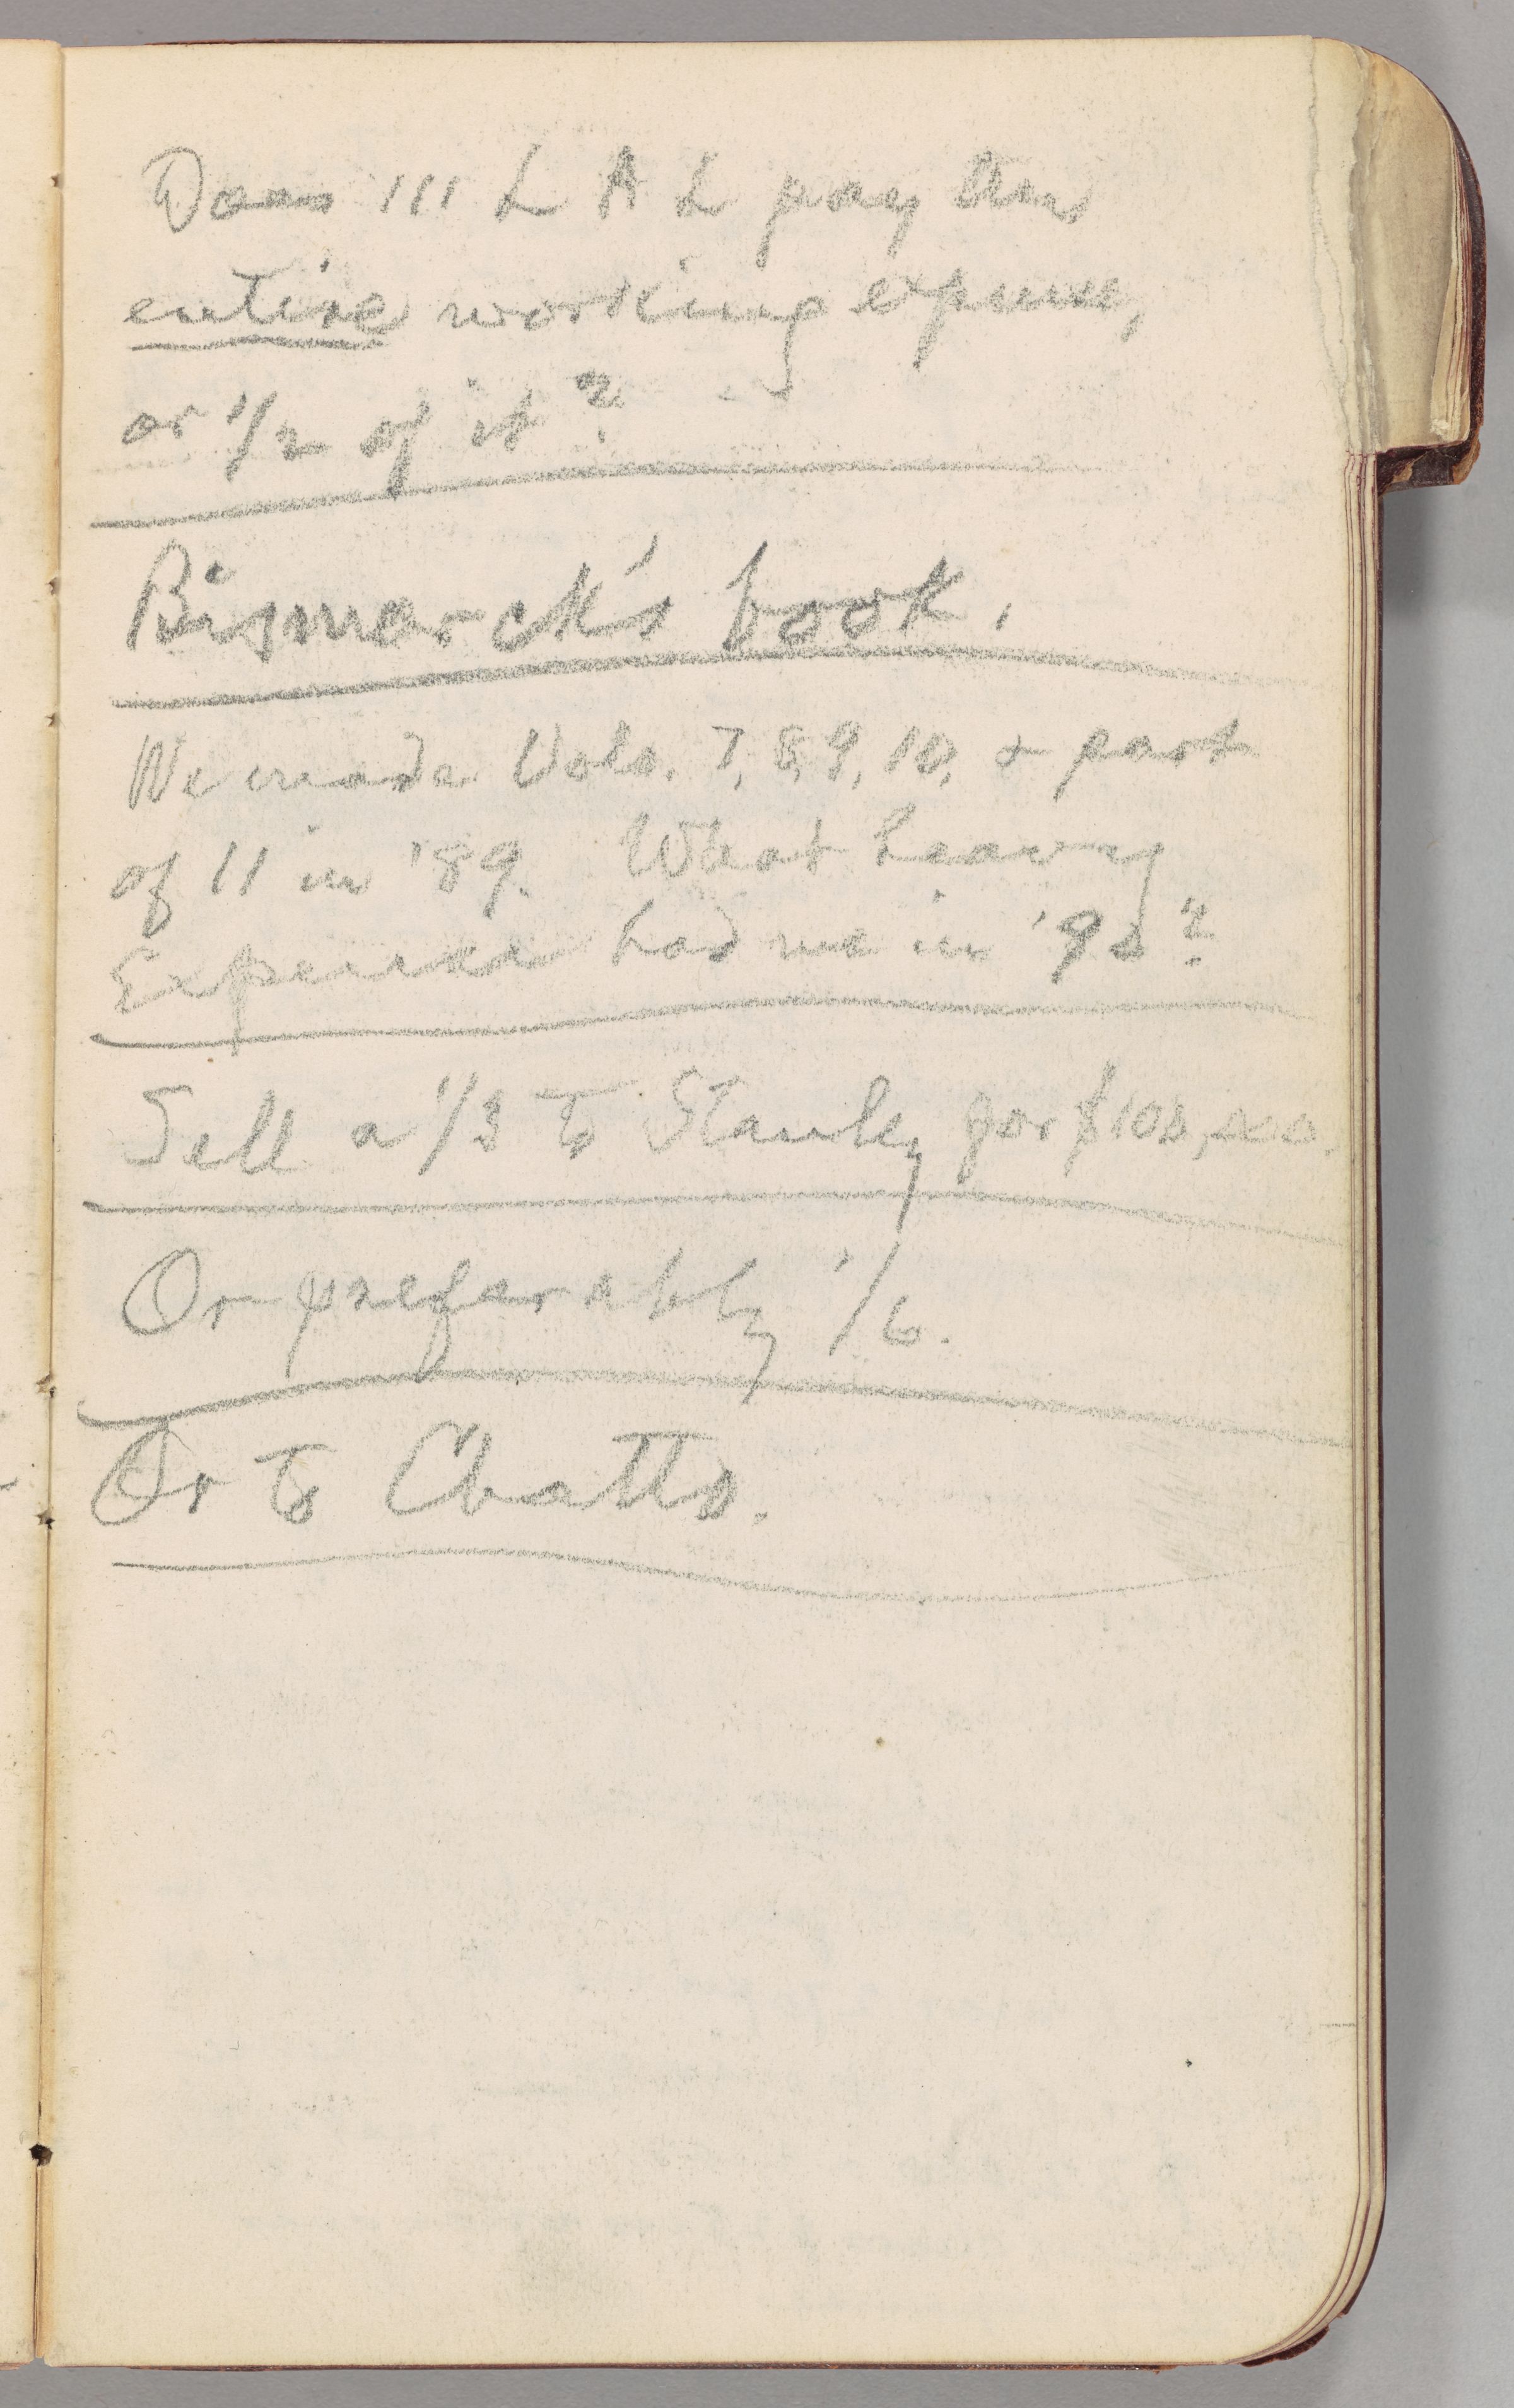 Does 111 L A L pay the
entire working expense,
or 1/2 of it?
Bismarck's book.
We made Vols. 7, 8, 9, 10, & part
of 11 in '89. What heavy
Expense had we in '90?
Sell a 1/3 to Stanley for $100,000.
Or preferably 1/6.
Or to Chatto.